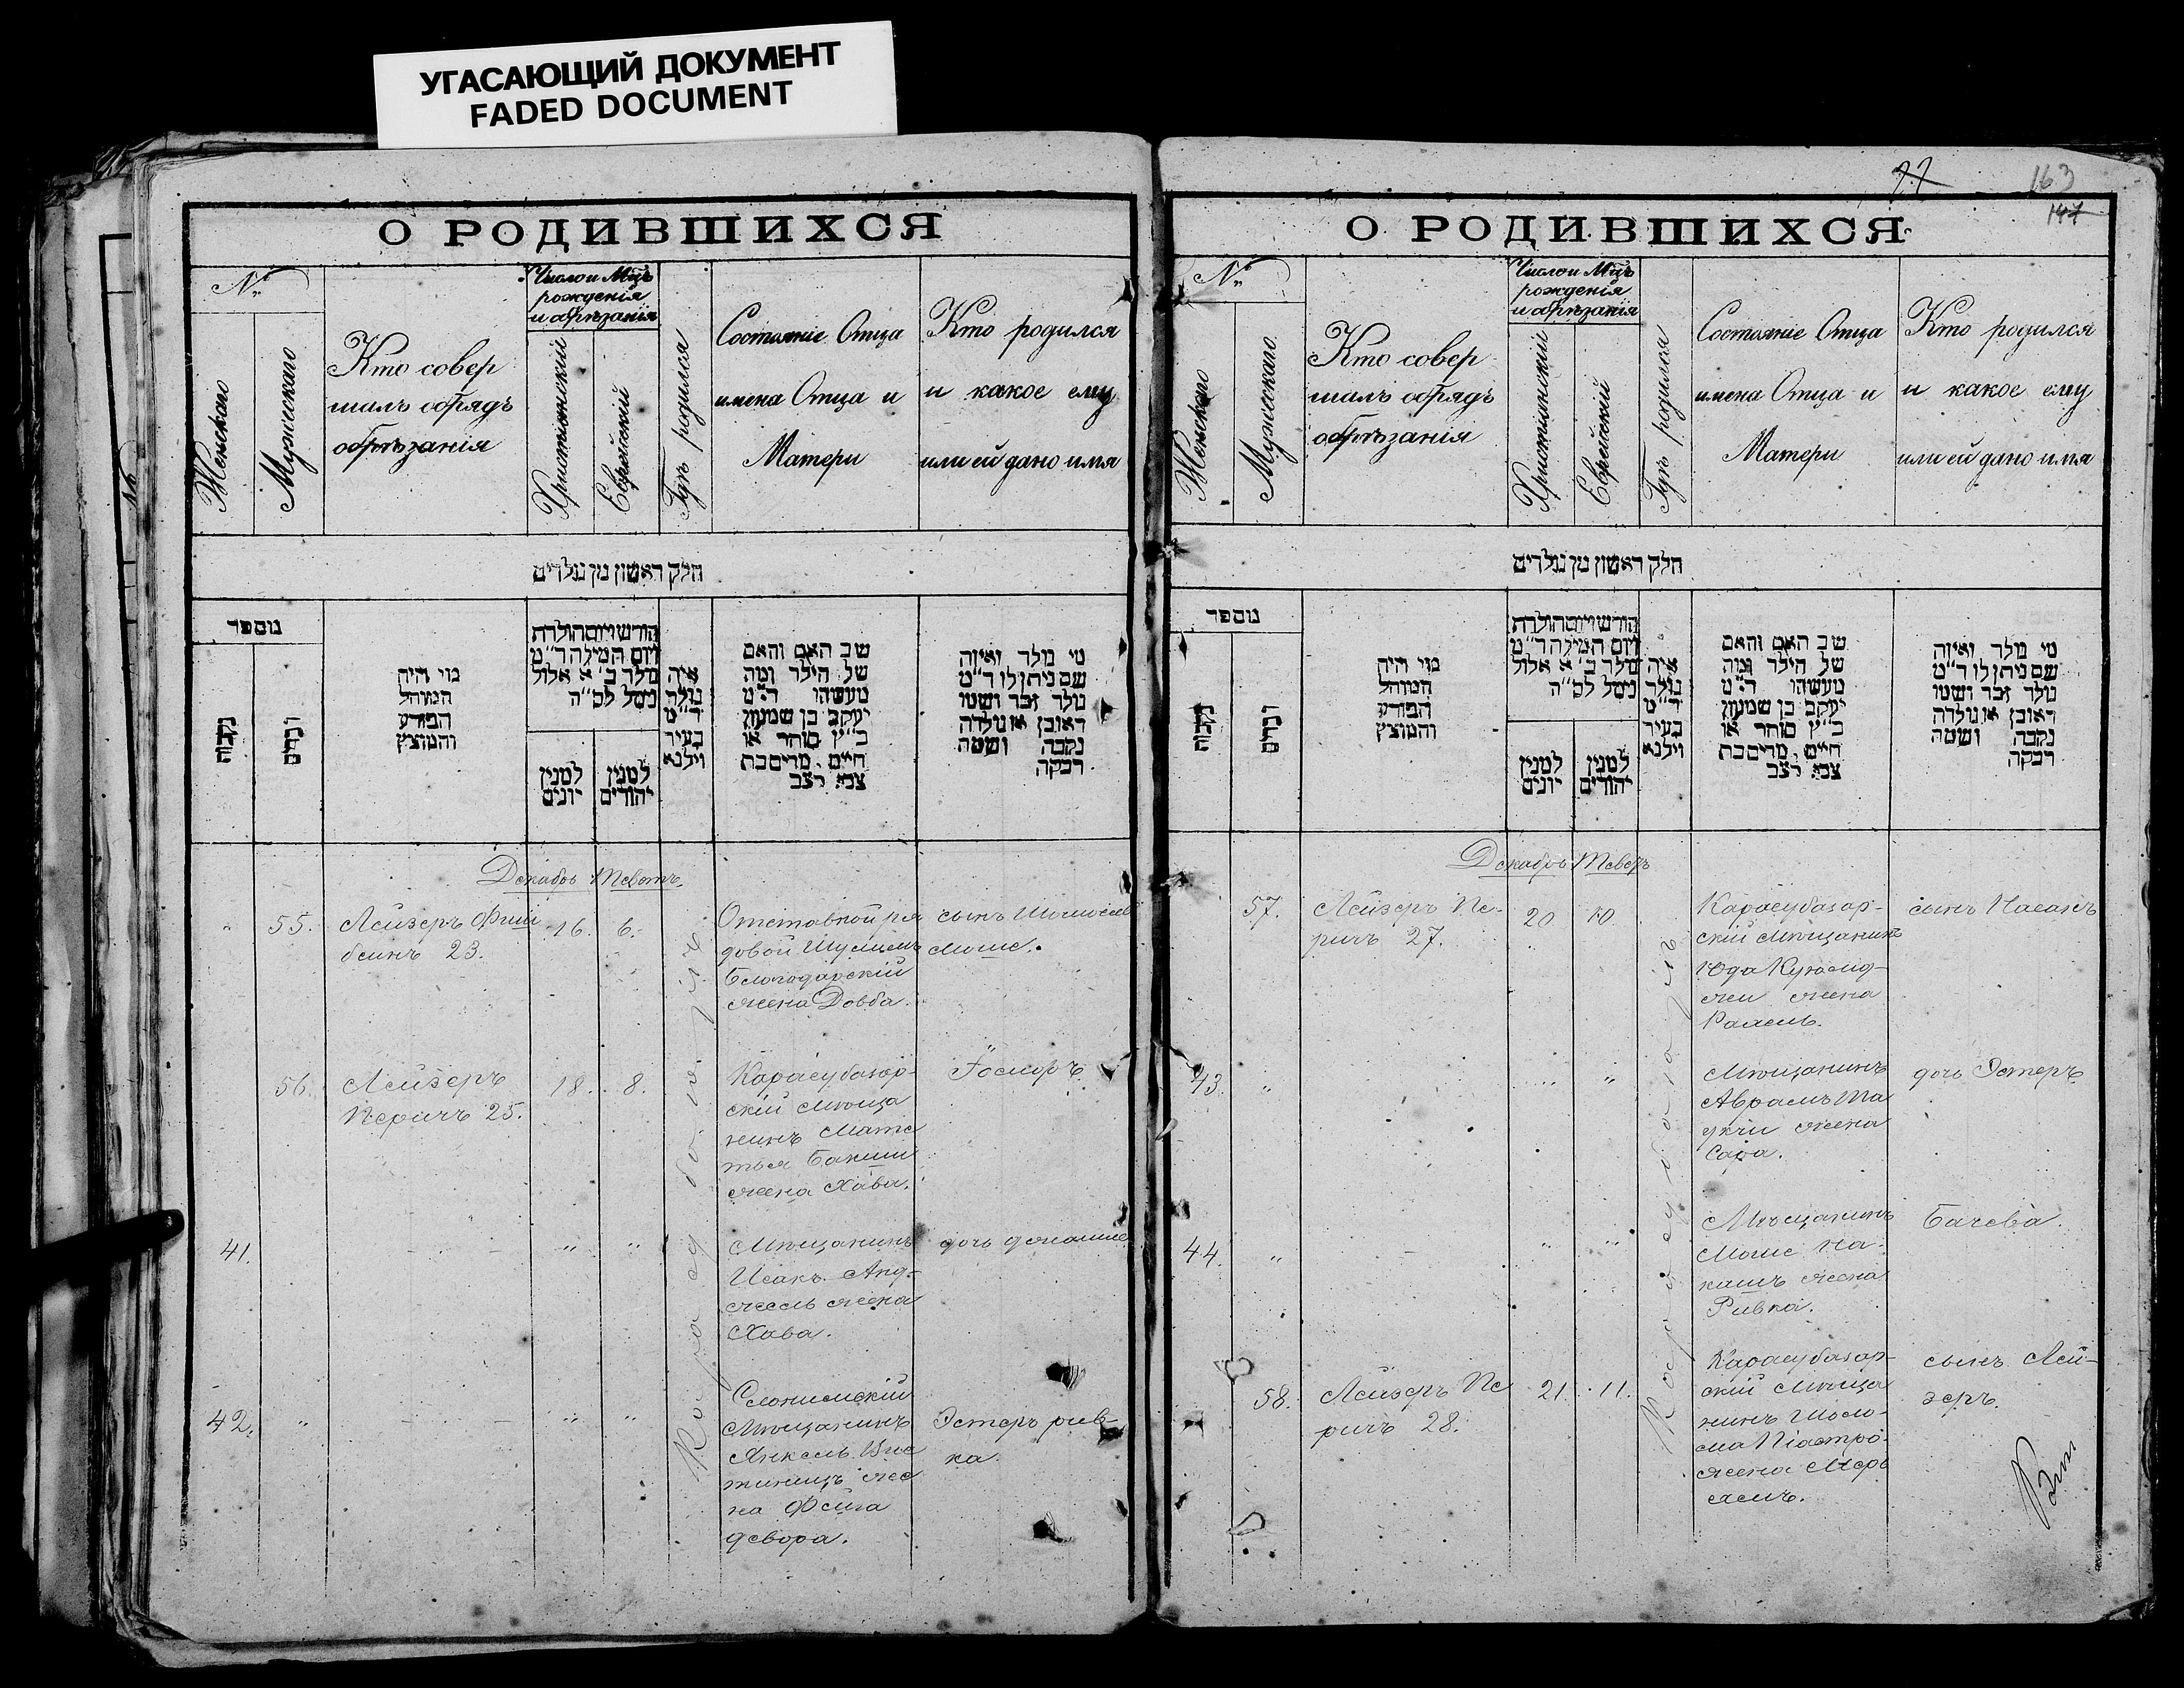 УГАСАЮЩИЙ ДОКУМЕНТ
FADED DOCUMENT
О РОДИВШИХСЯ
№
Женскаго
Мужескаго
Кто совер
шалъ обрядъ
обрѣзанія
Число и Мцъ
рожденія
и обрѣзанія
Христіянскій
Еврейскій
Гдѣ родился
Состояніе Отца
имена Отца и
Матери
Кто родился
и какое ему
или ей дано имя
חלק ראשון מן נולדים
מספר
נקבות
זכרים
מי היה
המוהל
הפורע
והמוצץ
חודש ויום הולדת
ויום המילה ד״מ
מולד ב׳ א אלול
ניסל לס״ה
למנין
יונים
למנין
יהודים
איה
נולד
ד״מ
בעיר
וילנא
שב האם והאם
של הילד ומה
מעשהו ד״מ
יעקב בן שמעון
כ״ץ סוחר או
חיים מרים בת
צבי רצב
מי נולד ואיזה
שם ניתן לו ד״מ
נולד זכר ושמו
ראובן או נולדה
נקבה ושמה
רבקה
Декабрь Теветъ.
55.
Лейзеръ Фиш
беинъ 23.
16.
6.
Отставной ря
довой
жена Довба.
сынъ
Моше.
56.
Лейзеръ
Перичъ 25.
18.
8.
Карасубазар-
скій мѣща
нинъ Мате
тья Бакши
жена Хава.
Іосифъ
41.
"
"
Мѣщанинъ
Исакъ
жена
Хава.
дочь
42.
"
"
"
Слонимскій
Мѣщанинъ
Янкель
же
на Фейга
Девора.
Эстеръ рив-
ка.
Карасубазаръ
77
163
147
О РОДИВШИХСЯ
№
Женскаго
Мужескаго
Кто совер
шалъ обрядъ
обрѣзанія
Число и Мцъ
рожденія
и обрѣзанія
Христіянскій
Еврейскій
Гдѣ родился
Состояніе Отца
имена Отца и
Матери
Кто родился
и какое ему
или ей дано имя
חלק ראשון מן נולדים
מספר
נקבות
זכרים
מי היה
המוהל
הפורע
והמוצץ
חודש ויום הולדת
ויום המילה ד״מ
מולד ב׳ א אלול
ניסל לס״ה
למנין
יונים
למנין
יהודים
איה
נולד
ד״מ
בעיר
וילנא
שב האם והאם
של הילד ומה
מעשהו ד״מ
יעקב בן שמעון
כ״ץ סוחר או
חיים מרים בת
צבי רצב
מי נולד ואיזה
שם ניתן לו ד״מ
נולד זכר ושמו
ראובן או נולדה
נקבה ושמה
רבקה
Декабрь Теветъ
57.
Лейзеръ Пе-
ричъ 27.
20
10
Карасубазар-
скій мѣщанинъ
Юда
жена
Рахель.
сынъ
43.
"
"
Мѣщанинъ
Аврамъ
жена
Сара.
дочь Эстеръ
44.
"
"
"
Мѣщанинъ
Моше
жена
Ривка.
Бачева.
58.
Лейзеръ Пе
ричъ 28.
21.
11.
Карасубазар-
скій мѣща
нинъ Шоло-
ма Піастро
жена
сынъ Лей-
зеръ.
Карасубазаръ